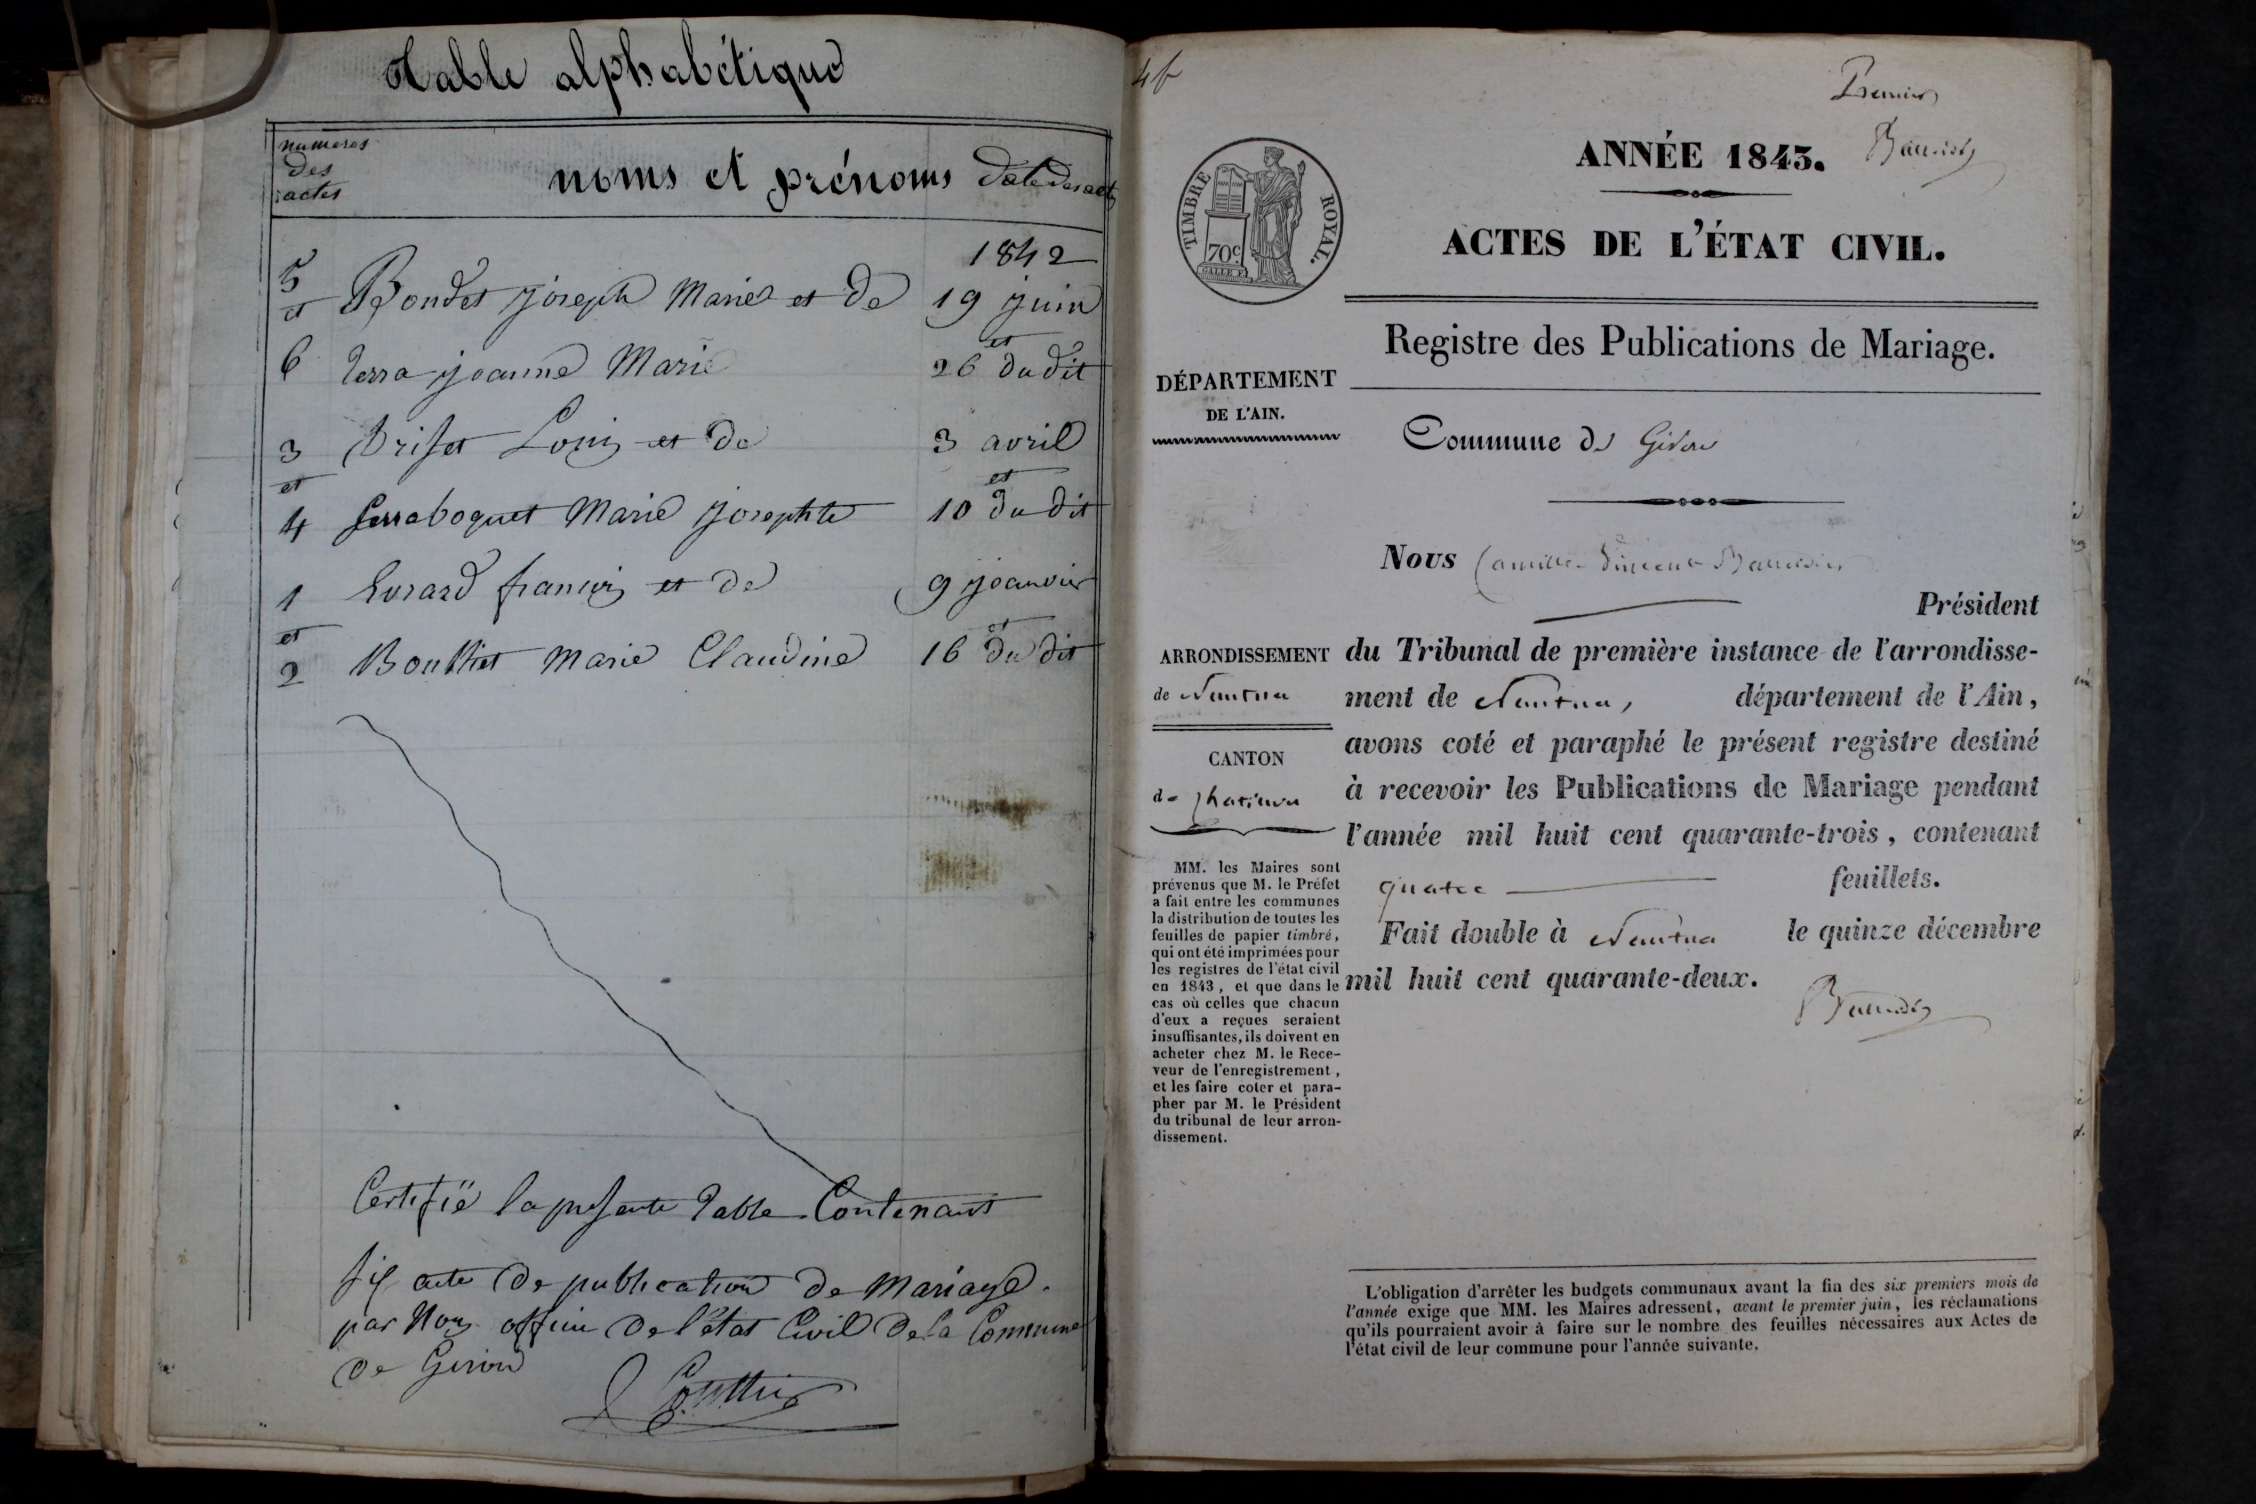 Table alphabétique
numeros
des
actes
noms et prénoms
date des actes
1842
5
et
Bondet joseph Marie et de
19 juin
et
6
Terra jeanne Marie
26 du dit
3
Brifet Louis et de
3 avril
et
et
4
Perraboquet Marie josephte
10 du dit
1
Evrard francois et de
9 jeanvier
et
et
2
Bouttiet Marie Claudine
16 du dit
Certifié la presente Table Contenant
six acte de publication de Mariage
par Nous officier de l'état Civil de la Commune
de Giron
4 f
Premier
ANNÉE 1843.
TIMBRE ROYAL.
70c
ACTES DE L'ÉTAT CIVIL.
Registre des Publications de Mariage.
DÉPARTEMENT
DE L'AIN.
Commune de Giron
Nous Camille Vincent Baudin
Président
ARRONDISSEMENT
de Nantua
CANTON
de Chatillon
du Tribunal de première instance de l'arrondisse-
ment de Nantua, département de l'Ain,
avons coté et paraphé le présent registre destiné
à recevoir les Publications de Mariage pendant
l'année mil huit cent quarante-trois, contenant
quatre feuillets.
Fait double à Nantua le quinze décembre
mil huit cent quarante-deux.
MM. les Maires sont
prévenus que M. le Préfet
a fait entre les communes
la distribution de toutes les
feuilles de papier timbré,
qui ont été imprimées pour
les registres de l'état civil
en 1843, et que dans le
cas où celles que chacun
d'eux a reçues seraient
insuffisantes, ils doivent en
acheter chez M. le Rece-
veur de l'enregistrement,
et les faire coter et para-
pher par M. le Président
du tribunal de leur arron-
dissement.
L'obligation d'arrêter les budgets communaux avant la fin des six premiers mois de
l'année exige que MM. les Maires adressent, avant le premier juin, les réclamations
qu'ils pourraient avoir à faire sur le nombre des feuilles nécessaires aux Actes de
l'état civil de leur commune pour l'année suivante.